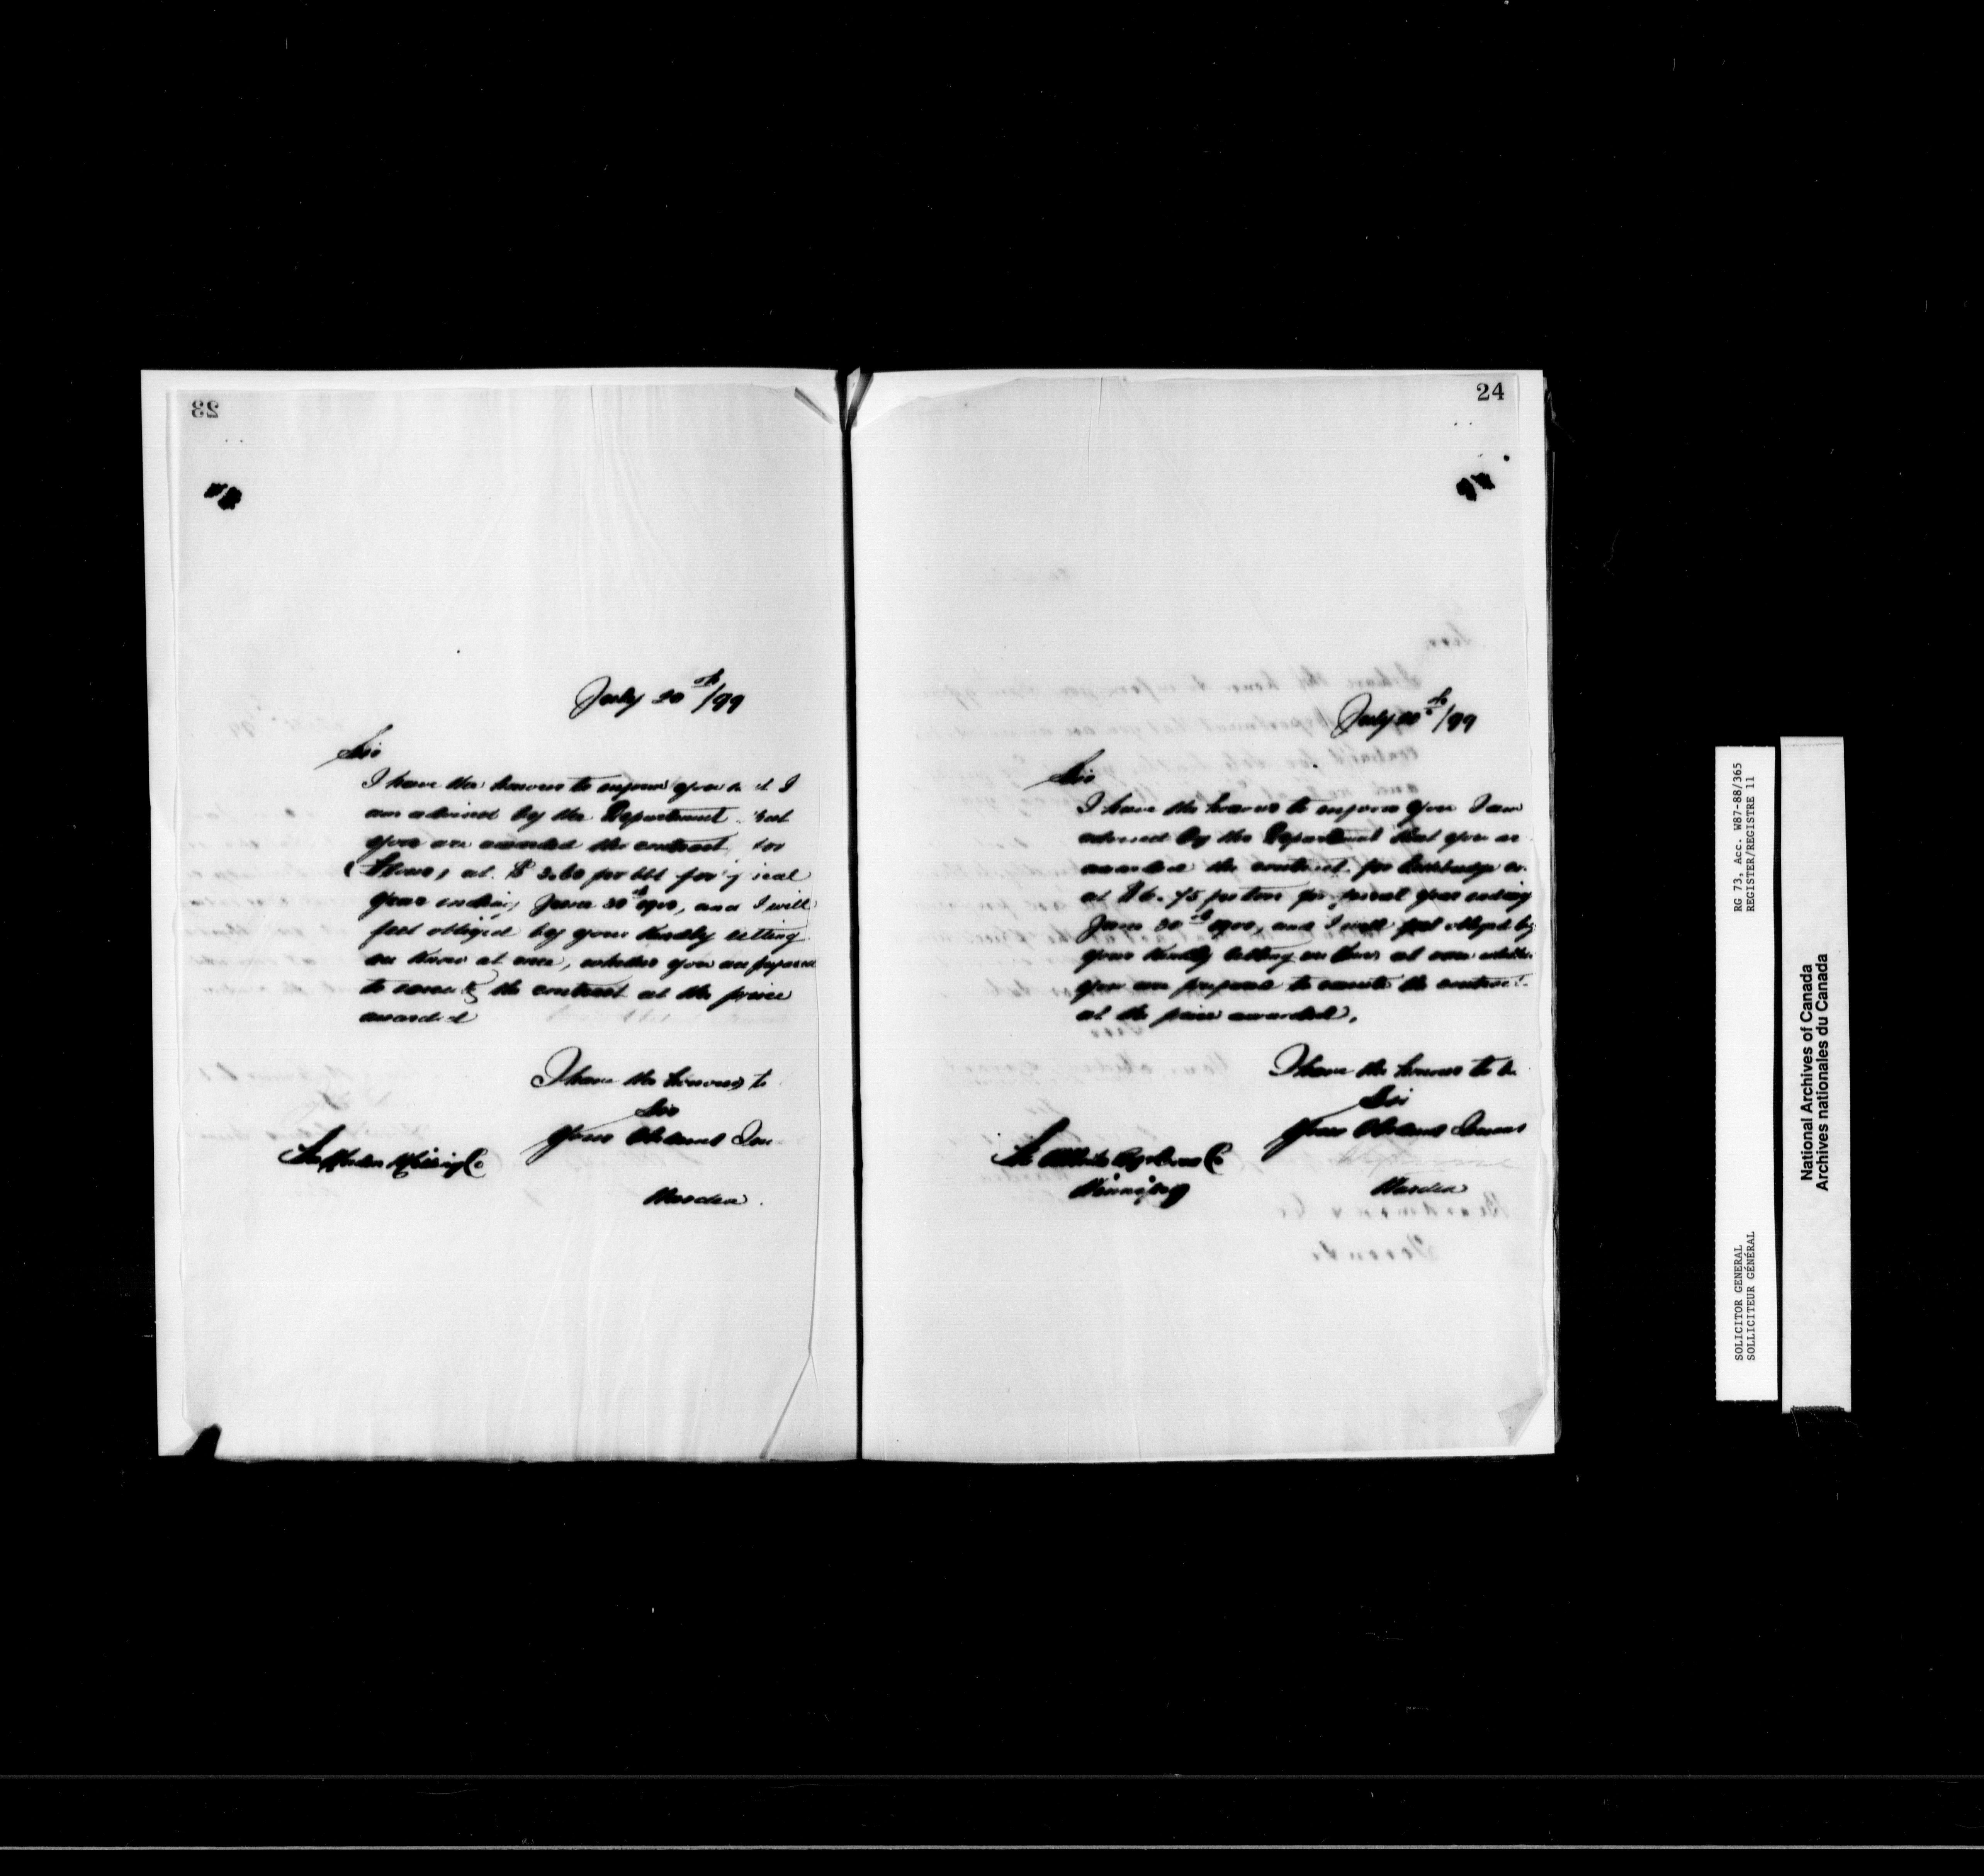 23
July 20th/99
Sir
I have the honour to inform you that I
am advised by the Department that
you are awarded the contract for
Flour, at $ 3.60 per bbl for fiscal
year ending June 30th 1900, and I will
feel obliged by your kindly letting
me know at once, whether you are prepared
to execute the contract at the price
awarded
I have the honour to
Sir
Your Obedient
Milling Co
Warden.
24
July 20th/99
Sir
I have the honour to inform you I am
advised by the Department that you are
awarded the contract for Lethbridge
at $6.75 per ton for fiscal year ending
June 30th 1900, and I will feel obliged by
your kindly letting me know at once whether
you are prepared to execute the contract
at the price awarded,
I have the honour to be
Sir
Your Obedient Servant
The Alberta Ry Co
Winnipeg
Warden
RG 73, Acc. W87-88/365
REGISTER/REGISTRE 11
SOLICITOR GENERAL
SOLLICITEUR GÉNÉRAL
National Archives of Canada
Archives nationales du Canada